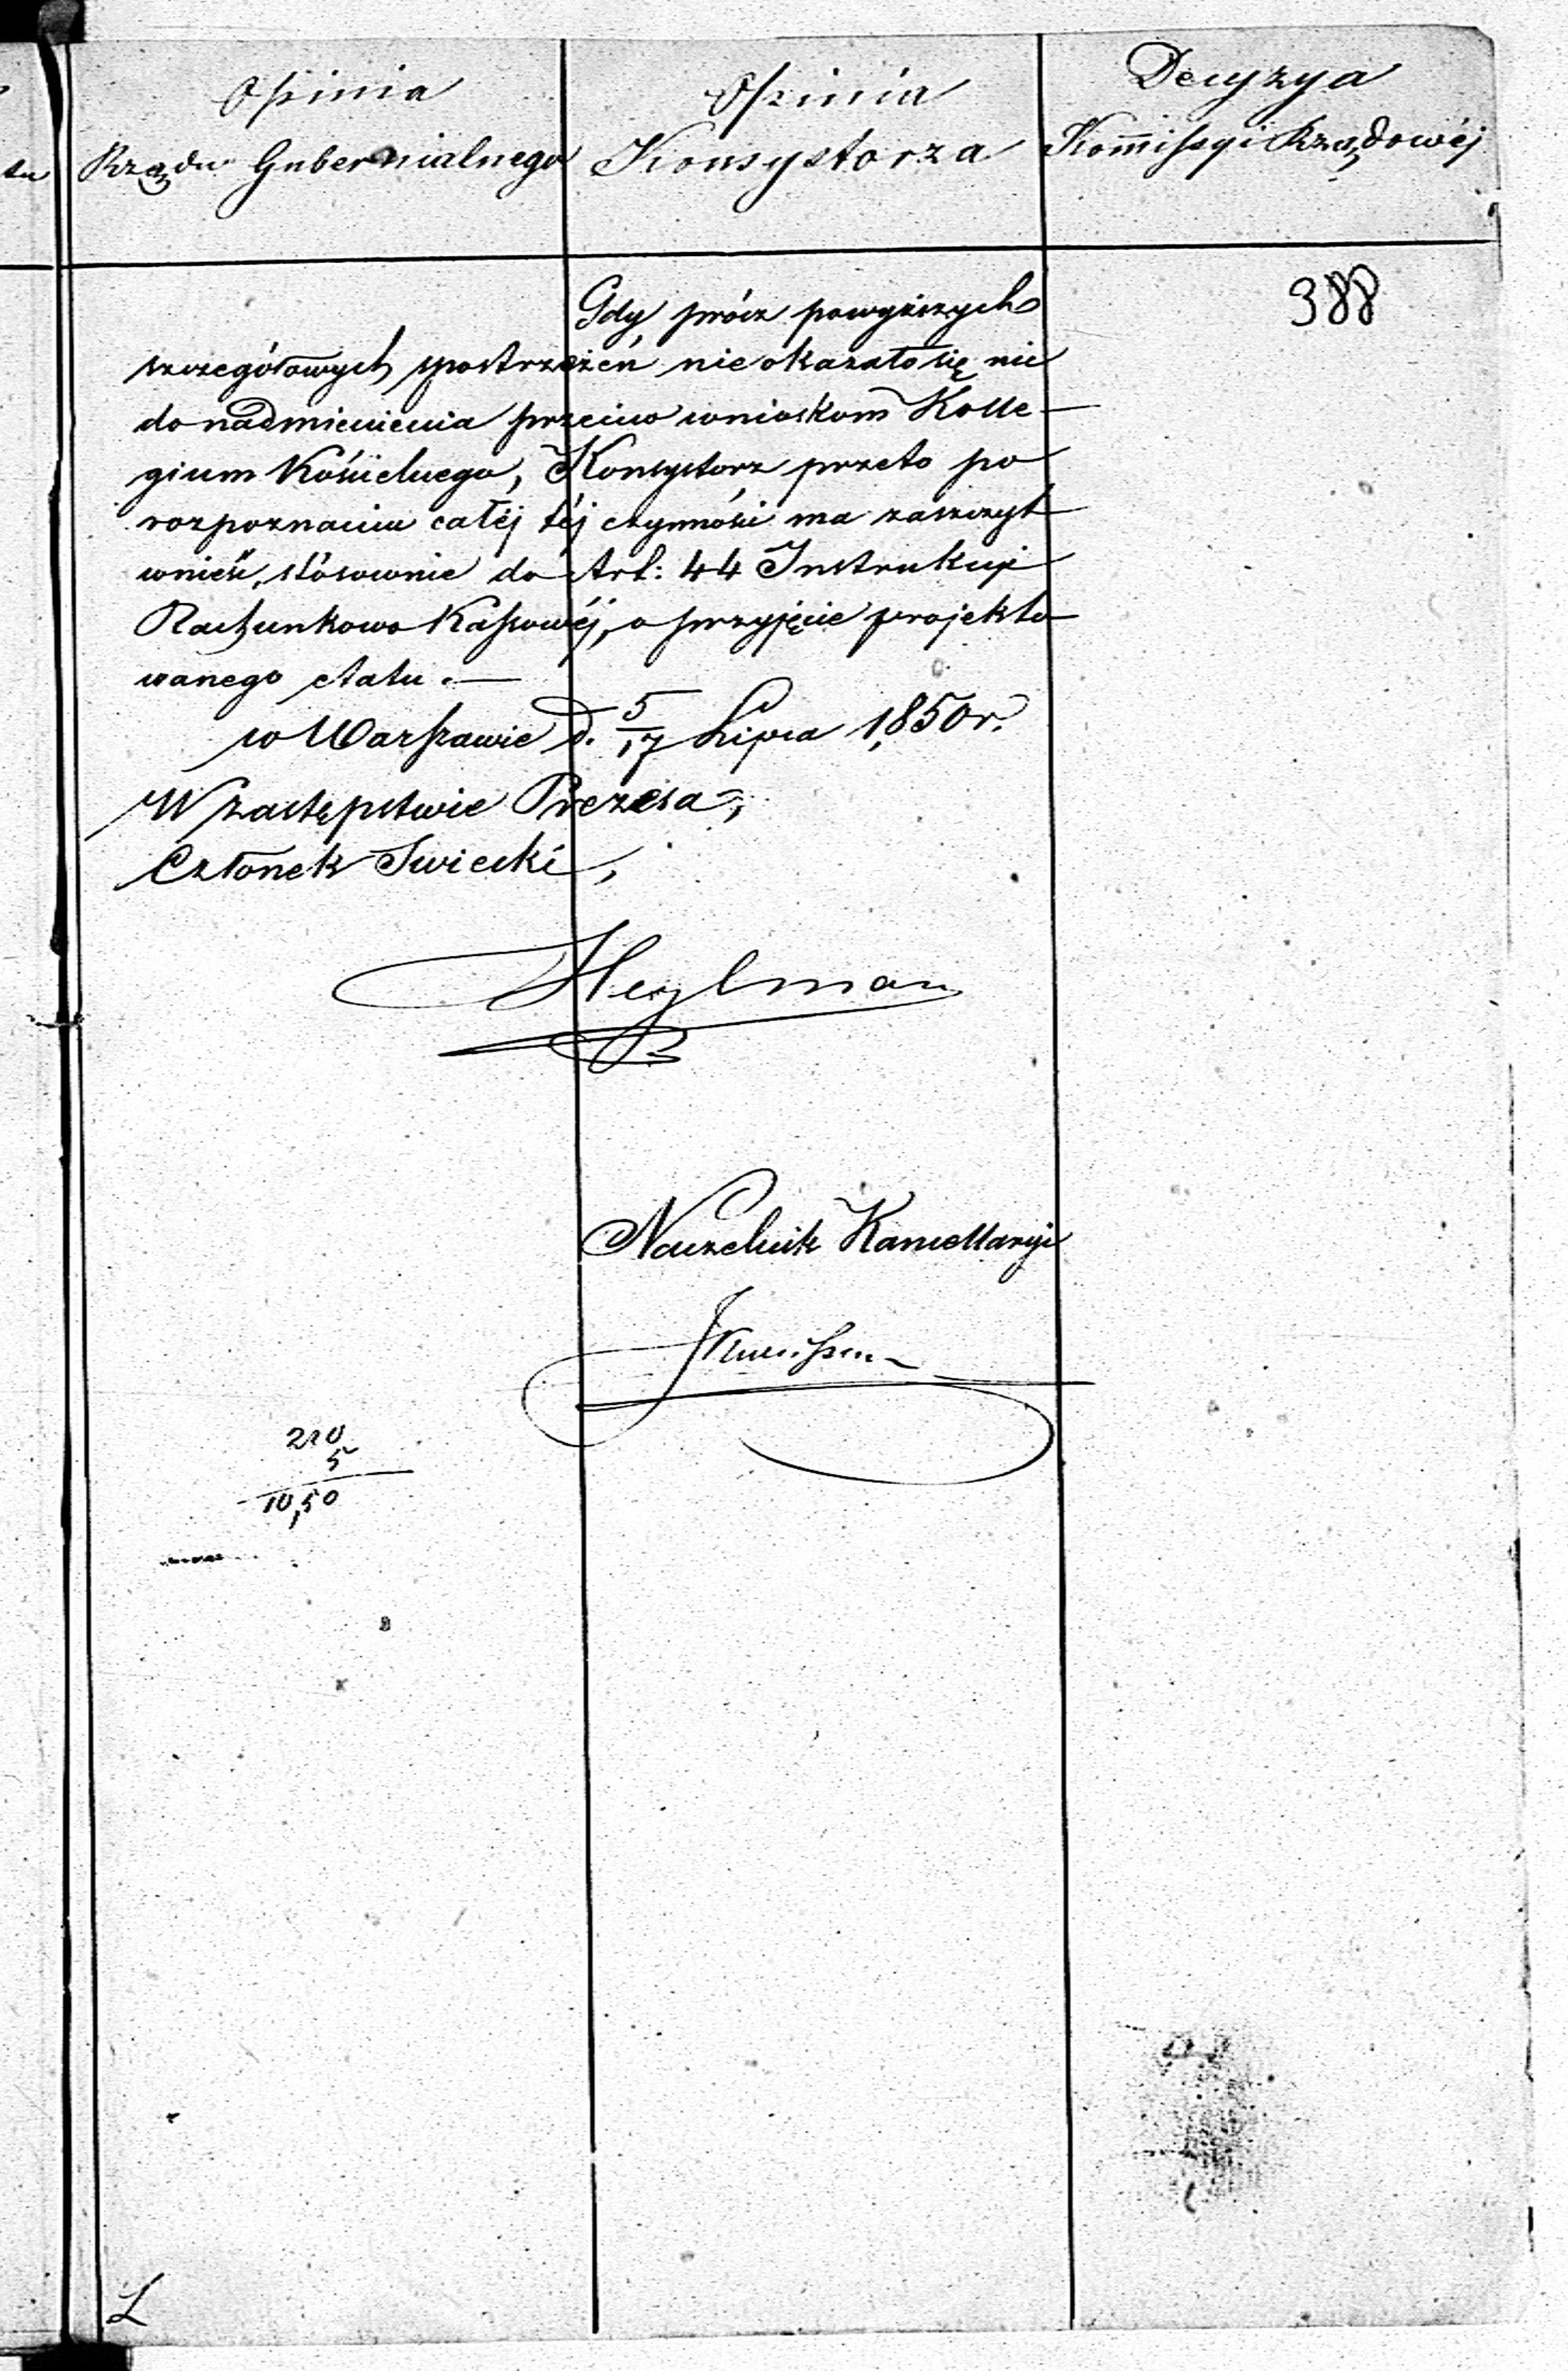 Opinia
Rządu Gubernialnego
Opinia
Konsystorza
Decyzya
Kommissyi Rządowéj
388
Gdy prócz powyższych
szczegółowych spostrzeżeń nie okazało się nic
do nadmienienia przeciw wnioskom Kolle-
gium Kościelnego, Konsystorz przeto po
rozpoznaniu całéj téj czynności ma zaszczyt
wnieść, stósownie do Art: 44 Instrukcyi
Rachunkowo Kassowéj, o przyjęcie projekto-
wanego etatu.—
w Warszawie d. 5/17 Lipca 1850 r.
W zastępstwie Prezesa,
Członek Swiecki,
Heylman
Naczelnik Kancellaryi
210
5
10,50
L